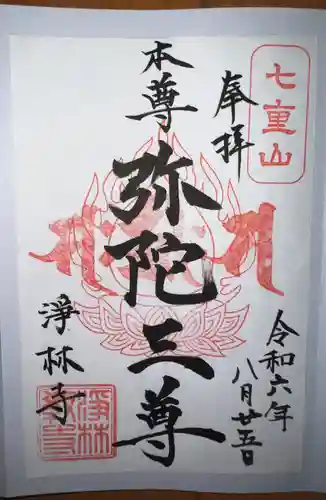 七重山
奉拝
本尊
弥陀三尊
令和六年
八月廿五日
淨林寺